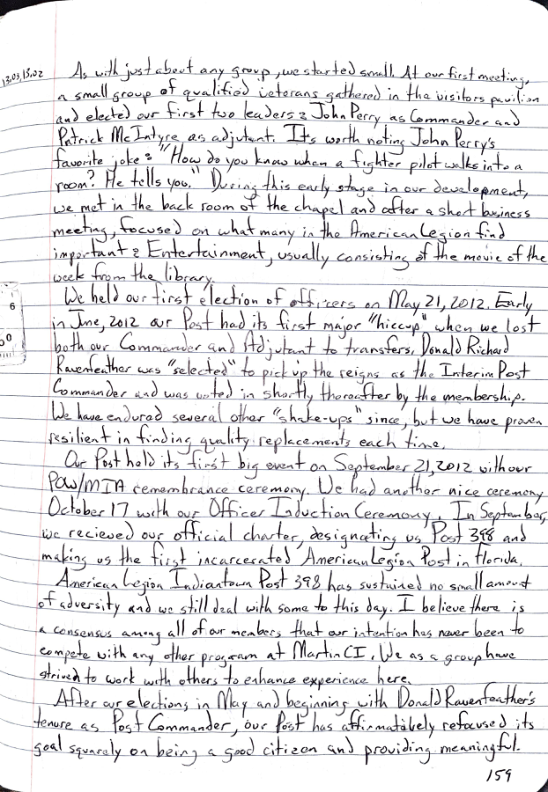 13,03,15,02
As with just about any group, we started small. At our first meeting,
a small group of qualified veterans gathered in the visitors pavilion
and elected our first two leaders: John Perry as Commander and
Patrick McIntyre as adjutant. It's worth noting John Perry's
favorite joke: "How do you know when a fighter pilot walks into a
room? He tells you." During this early stage in our development,
we met in the back room of the chapel and after a short business
meeting, focused on what many in the American Legion find
important: Entertainment, usually consisting of the movie of the
week from the library.
We held our first election of officers on May 21, 2012. Early
in June, 2012 our Post had its first major "hiccup" when we lost
both our Commander and Adjutant to transfers. Donald Richard
Ravenfeather was "selected" to pick up the reigns as the Interim Post
Commander and was voted in shortly thereafter by the membership.
We have endured several other "shake-ups" since, but we have proven
resilient in finding quality replacements each time.
Our Post held its first big event on September 21, 2012 with our
POW/MIA remembrance ceremony. We had another nice ceremony
October 17 with our Officer Induction Ceremony. In September,
we recieved our official charter, designating us Post 398 and
making us the first incarcerated American Legion Post in Florida.
American Legion Indiantown Post 398 has sustained no small amount
of adversity and we still deal with some to this day. I believe there is
a consensus among all of our members that our intention has never been to
compete with any other program at Martin CI. We as a group have
strived to work with others to enhance experience here.
After our elections in May and beginning with Donald Ravenfeather's
tenure as Post Commander, our Post has affirmatively refocused its
goal squarely on being a good citizen and providing meaningful.
159
6